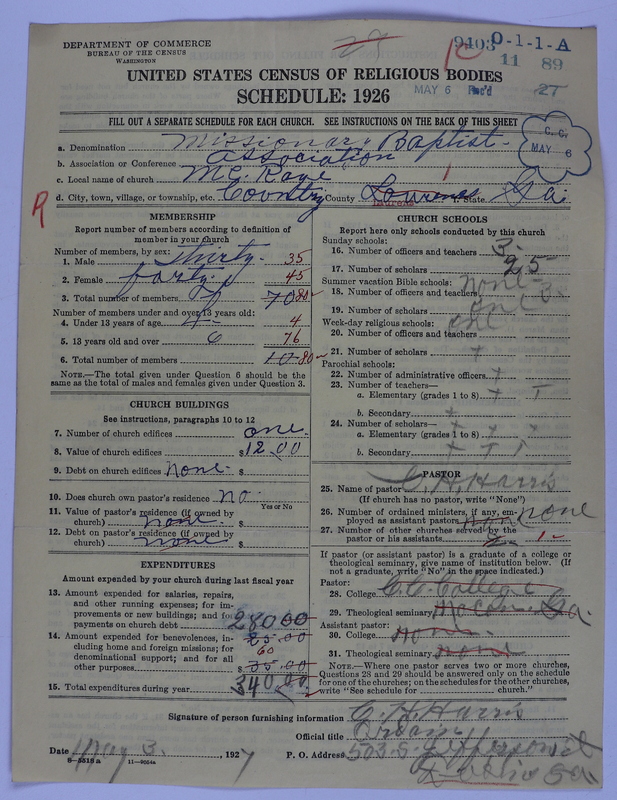 DEPARTMENT OF COMMERCE
BUREAU OF THE CENSUS
WASHINGTON
29
9403 0-1-1-A
11 89
UNITED STATES CENSUS OF RELIGIOUS BODIES
SCHEDULE: 1926
MAY 6 Rec'd 27
FILL OUT A SEPARATE SCHEDULE FOR EACH CHURCH. SEE INSTRUCTIONS ON THE BACK OF THIS SHEET
C. C.
MAY 6
a. Denomination Missionary Baptist
b. Association or Conference Association
c. Local name of church Mc Raye
d. City, town, village, or township, etc. Country County Laurens State Ga.
R
MEMBERSHIP
Report number of members according to definition of
member in your church
Number of members, by sex:
1. Male thirty 35
2. Female forty 45
3. Total number of members 70 80
Number of members under and over 13 years old:
4. Under 13 years of age 4 4
5. 13 years old and over 6 76
6. Total number of members 10 80
NOTE.—The total given under Question 6 should be the
same as the total of males and females given under Question 3.
CHURCH BUILDINGS
See instructions, paragraphs 10 to 12
7. Number of church edifices one
8. Value of church edifices $12.00
9. Debt on church edifices none $
10. Does church own pastor's residence no
Yes or No
11. Value of pastor's residence (if owned by
church) none $
12. Debt on pastor's residence (if owned by
church) none $
EXPENDITURES
Amount expended by your church during last fiscal year
13. Amount expended for salaries, repairs,
and other running expenses; for im-
provements or new buildings; and for
payments on church debt 280 00
14. Amount expended for benevolences, in-
cluding home and foreign missions; for
denominational support; and for all
other purposes
25.00
60
$35.00
15. Total expenditures during year 340.00
CHURCH SCHOOLS
Report here only schools conducted by this church
Sunday schools:
16. Number of officers and teachers 3
17. Number of scholars 25
Summer vacation Bible schools:
18. Number of officers and teachers none
19. Number of scholars one
Week-day religious schools:
20. Number of officers and teachers one
21. Number of scholars
Parochial schools:
22. Number of administrative officers
23. Number of teachers—
a. Elementary (grades 1 to 8)
b. Secondary
24. Number of scholars—
a. Elementary (grades 1 to 8)
b. Secondary
PASTOR
25. Name of pastor C. H. Harris
(If church has no pastor, write "None")
26. Number of ordained ministers, if any, em-
ployed as assistant pastors none none
27. Number of other churches served by the
pastor or his assistants 2 1
If pastor (or assistant pastor) is a graduate of a college or
theological seminary, give name of institution below. (If
not a graduate, write "No" in the space indicated.)
Pastor:
28. College C. C. College
29. Theological seminary Macon Ga.
Assistant pastor:
30. College none
31. Theological seminary none
NOTE.—Where one pastor serves two or more churches,
Questions 28 and 29 should be answered only on the schedule
for one of the churches; on the schedules for the other churches,
write "See schedule for church."
Signature of person furnishing information C. H. Harris
Official title
Date May 3, 1927 P. O. Address 503 S. Jefferson st
8-5518a 11-9034a Dublin Ga.